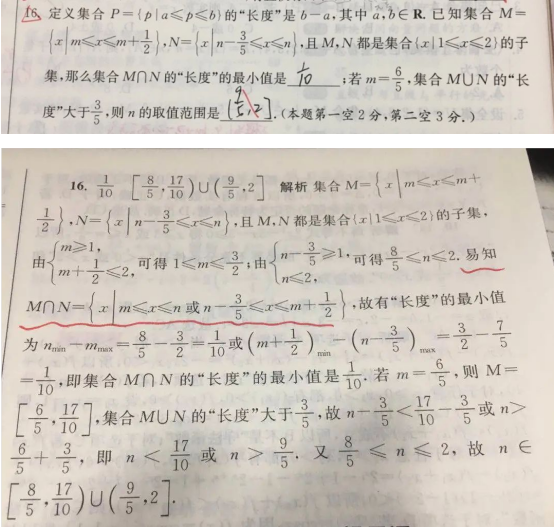 16. 定义集合 P={p|a≤p≤b}的“长度”是 b-a,其中 a,b∈R. 已知集合 M=
{x|m≤x≤m+1/2},N={x|n-3/5≤x≤n},且 M,N 都是集合{x|1≤x≤2}的子
集,那么集合 M∩N 的“长度”的最小值是 1/10 ;若 m=6/5,集合 M∪N 的“长
度”大于3/5,则 n 的取值范围是 (9/5,2].(本题第一空2分,第二空3分.)
16. 1/10 [8/5,17/10)∪(9/5,2] 解析 集合 M={x|m≤x≤m+
1/2},N={x|n-3/5≤x≤n},且 M,N 都是集合{x|1≤x≤2}的子集,
由{m≥1, m+1/2≤2, 可得 1≤m≤3/2;由{n-3/5≥1, n≤2, 可得8/5≤n≤2.易知
M∩N={x|m≤x≤n或n-3/5≤x≤m+1/2},故有“长度”的最小值
为 nmin-mmax=8/5-3/2=1/10或(m+1/2)min-(n-3/5)max=3/2-7/5
=1/10,即集合 M∩N 的“长度”的最小值是1/10.若 m=6/5,则 M=
[6/5,17/10],集合 M∪N 的“长度”大于3/5,故 n-3/5<17/10-3/5或 n>
6/5+3/5,即 n<17/10或 n>9/5.又8/5≤n≤2,故 n∈
[8/5,17/10)∪(9/5,2].